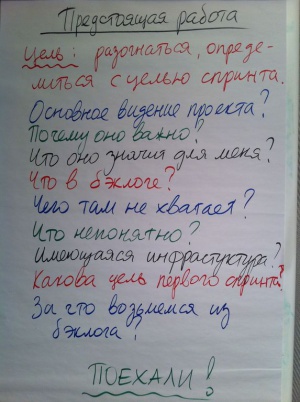 Предстоящая работа
Цель: разогнаться, опреде-
литься с целью спринта.
Основное видение проекта?
Почему оно важно?
Что оно значит для меня?
Что в бэклоге?
Чего там не хватает?
Что непонятно?
Имеющаяся инфрастуктура?
Какова цель первого спринта?
За что возьмемся из
бэклога?
ПОЕХАЛИ!